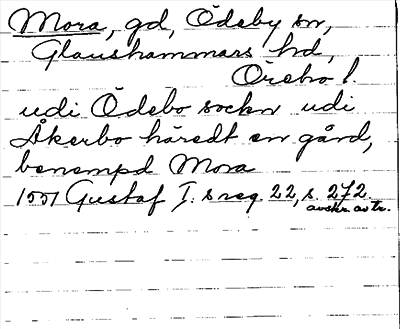 Mora, gd, Ödeby sn,
Glanshammars hd,
Örebro l.
udi Ödebo sockn udi
Åkerbo häredt en gård,
benempd Mora
1551 Gustaf I. s reg. 22, s. 272.
avskr. av tr.